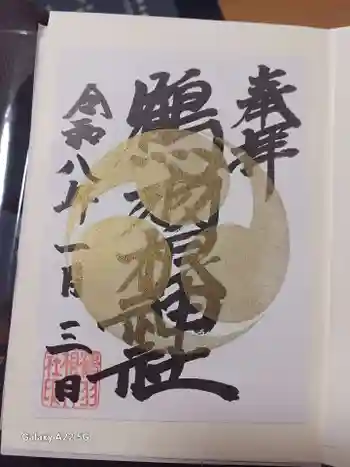 奉拝
鵜羽根神社
令和八年一月三日
Galaxy A22 5G